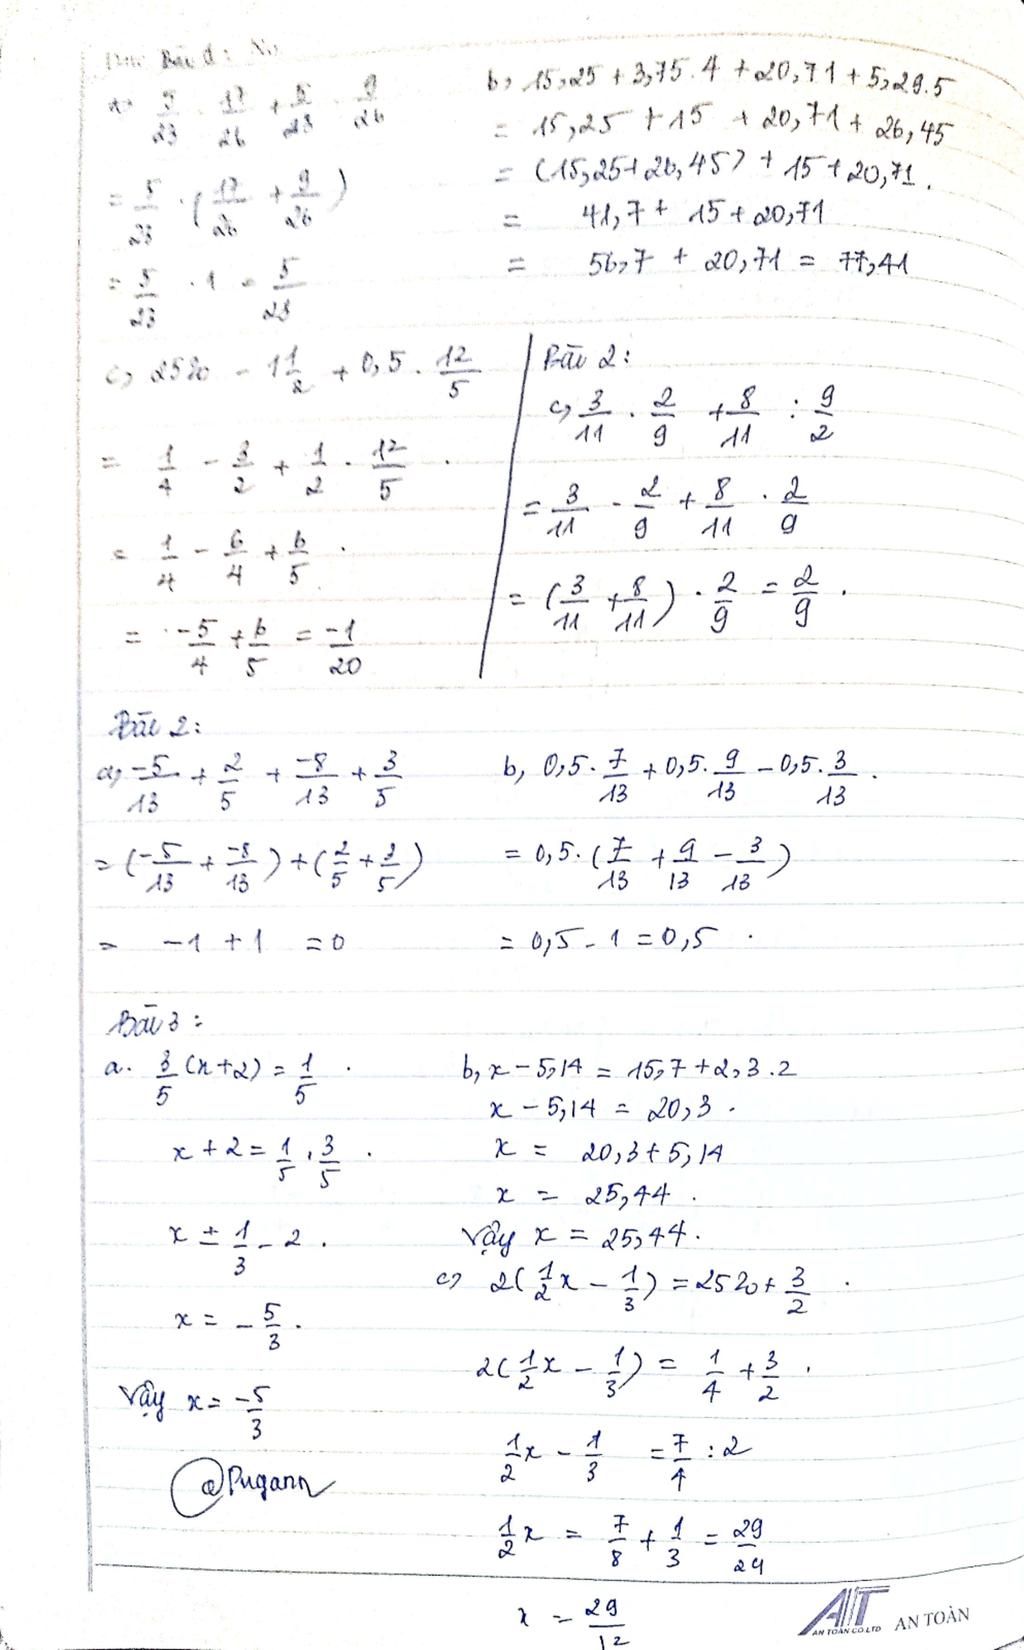 Bài 1:
a, 5/23 . 17/26 + 5/23 . 9/26
= 5/23 . (17/26 + 9/26)
= 5/23 . 1 = 5/23
b, 15,25 + 3,75.4 + 20,71 + 5,29.5
= 15,25 + 15 + 20,71 + 26,45
= (15,25+26,45) + 15+20,71.
= 41,7 + 15 + 20,71
= 56,7 + 20,71 = 77,41
c, 25% - 1 1/2 + 0,5 . 12/5
= 1/4 - 3/2 + 1/2 . 12/5 .
= 1/4 - 6/4 + 6/5 .
= -5/4 + 6/5 = -1/20
Bài 2:
c, 3/11 . 2/9 + 8/11 : 9/2
= 3/11 - 2/9 + 8/11 . 2/9
= (3/11 + 8/11) . 2/9 = 2/9 .
Bài 2:
a, -5/13 + 2/5 + -8/13 + 3/5
= (-5/13 + -8/13) + (2/5 + 3/5)
= -1 + 1 = 0
b, 0,5. 7/13 + 0,5. 9/13 - 0,5. 3/13 .
= 0,5. (7/13 + 9/13 - 3/13)
= 0,5 - 1 = 0,5 .
Bài 3:
a. 3/5 (x+2) = 1/5 .
x + 2 = 1/5 : 3/5 .
x = 1/3 - 2 .
x = - 5/3 .
Vậy x = -5/3
@Pugann
b, x - 5,14 = 15,7 + 2,3.2
x - 5,14 = 20,3 .
x = 20,3 + 5,14
x = 25,44 .
Vậy x = 25,44 .
c, 2(1/2 x - 1/3) = 25% + 3/2 .
2(1/2 x - 1/3) = 1/4 + 3/2 .
1/2 x - 1/3 = 7/4 : 2
1/2 x = 7/8 + 1/3 = 29/24
x = 29/12
AT
AN TOÀN CO.LTD
AN TOÀN